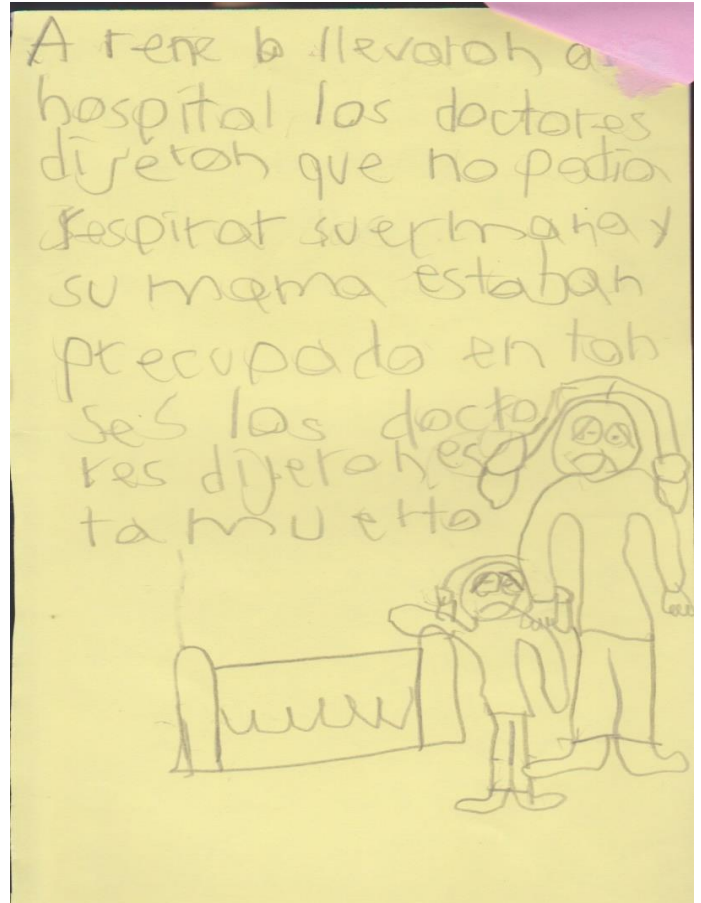 A rene lo llevaron a
hospital los doctores
dijeron que no podia
respirar su ermana y
su mama estaban
precupado en ton
ses los docto
res dijeron es
ta muerto